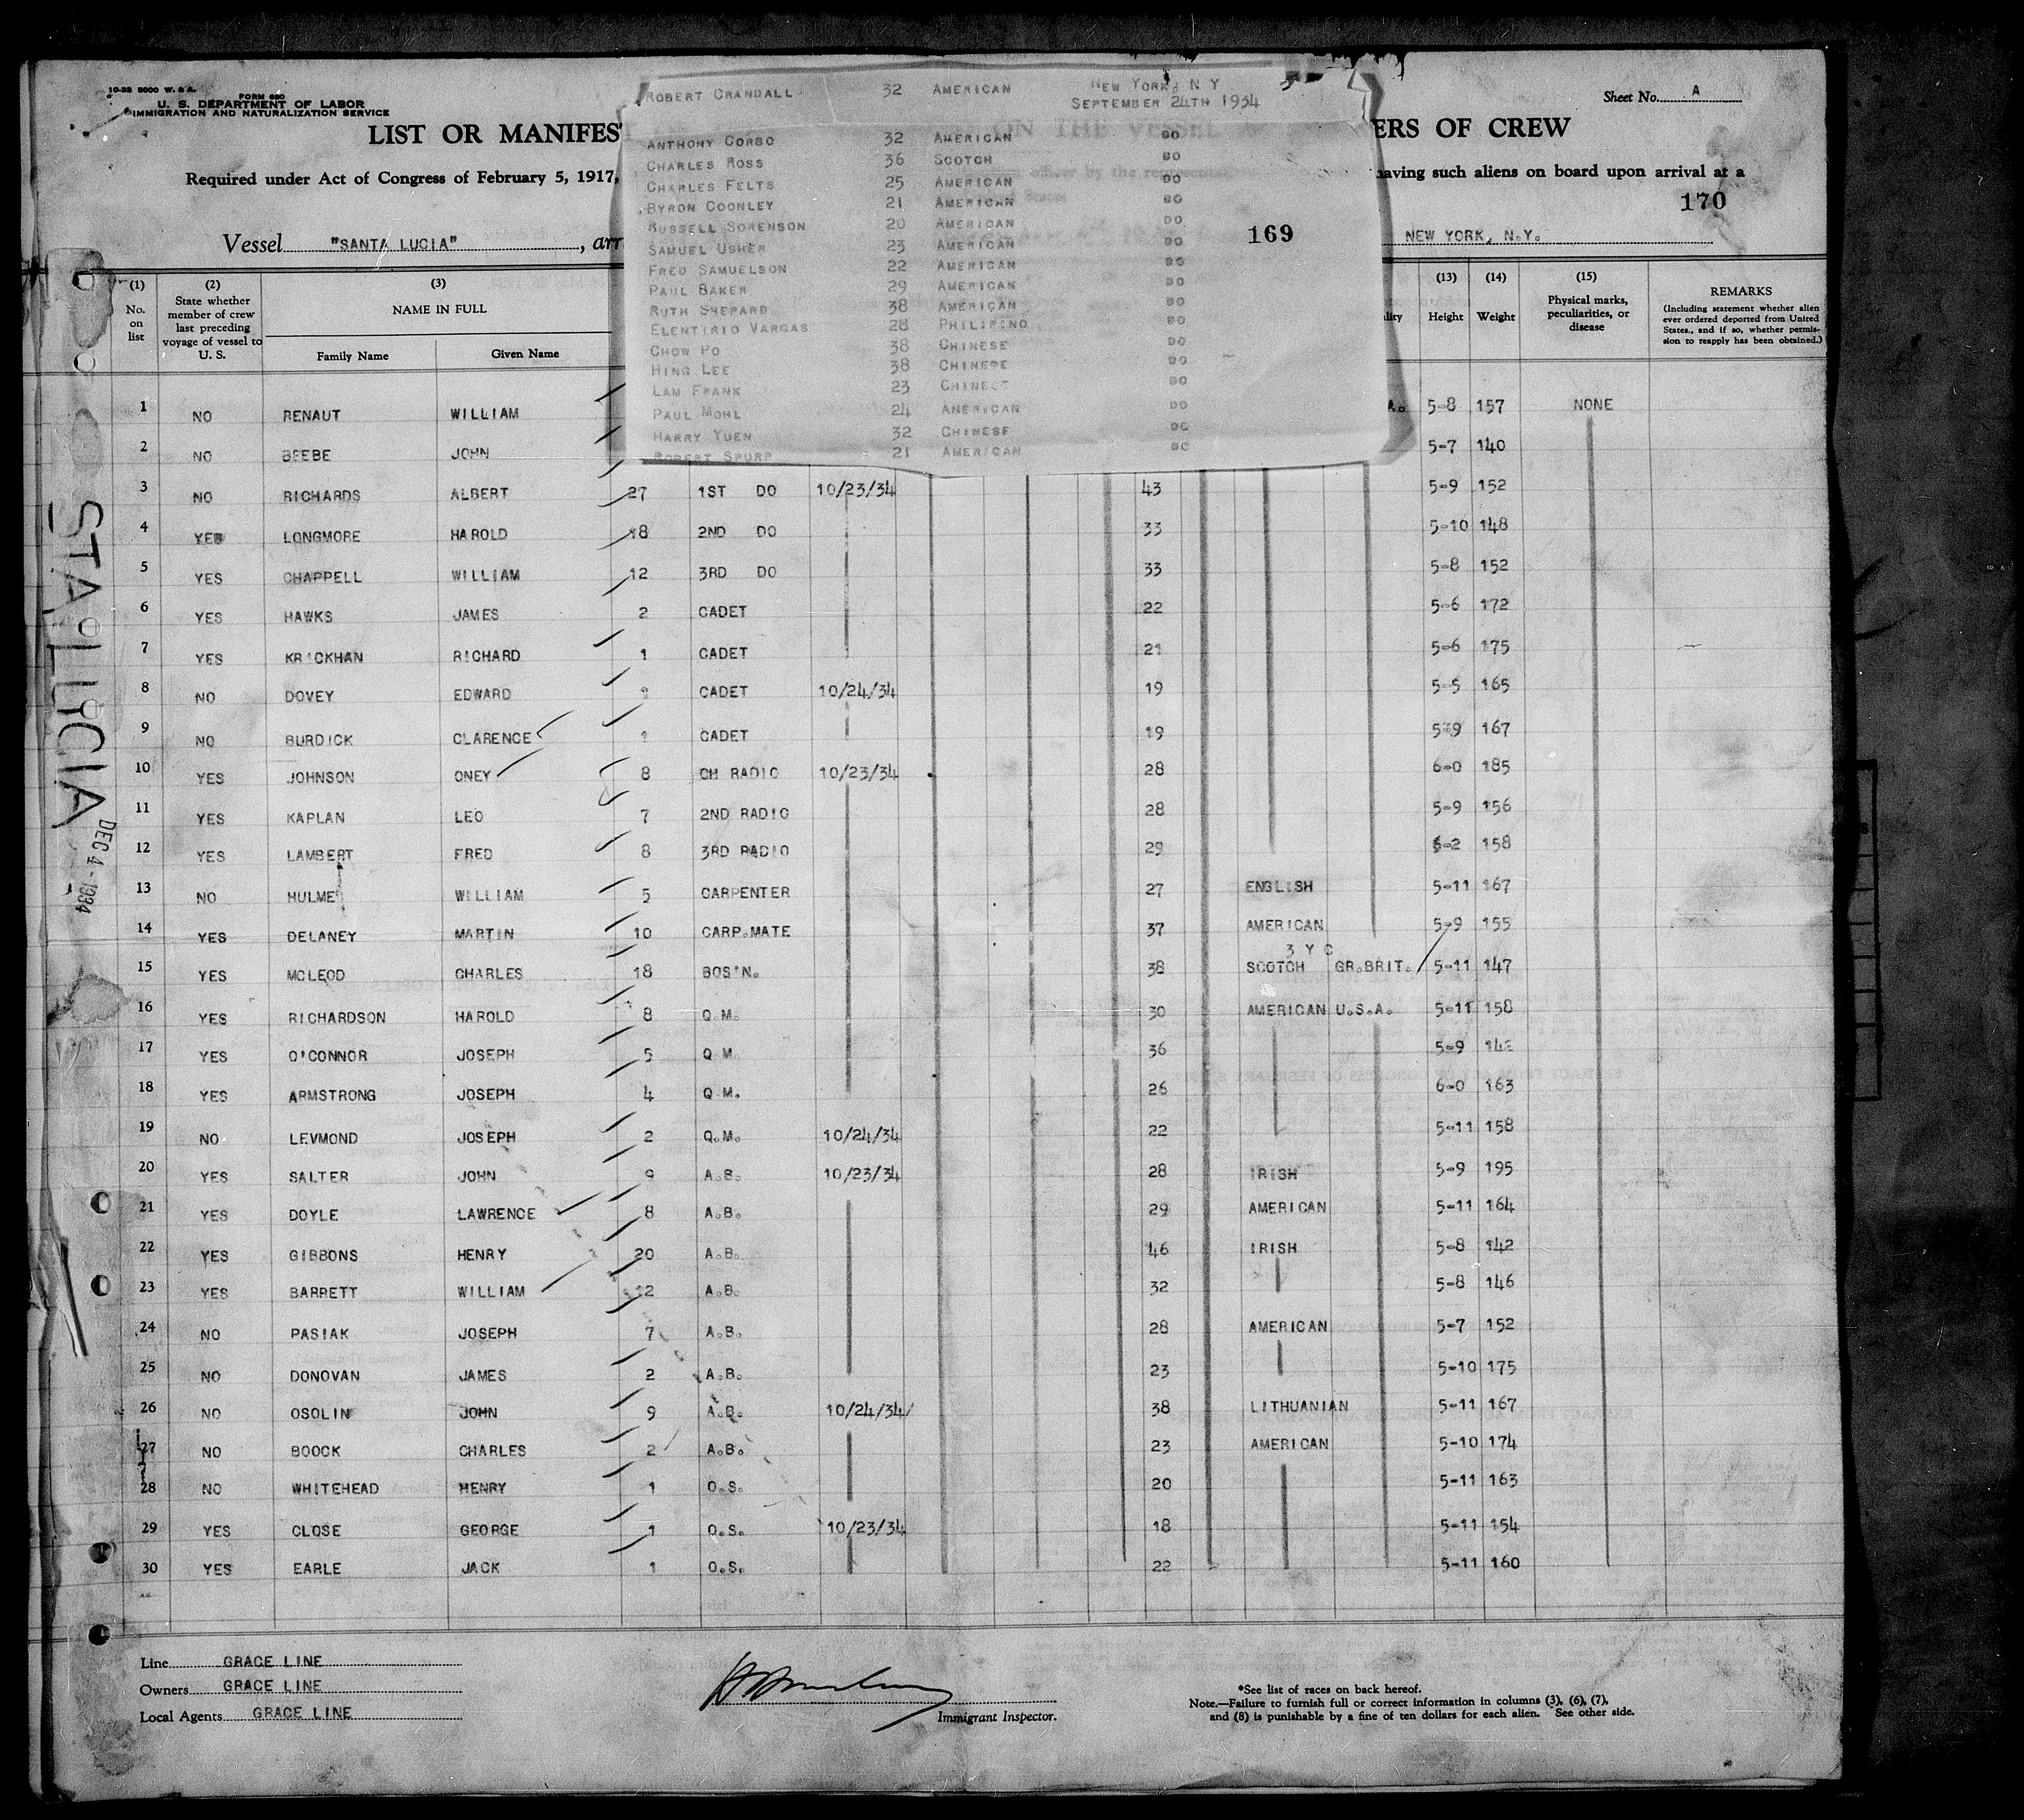 10-23 5000 W. & A.
FORM 680
U. S. DEPARTMENT OF LABOR
IMMIGRATION AND NATURALIZATION SERVICE
Sheet No. A
LIST OR MANIFES
ON THE VESSEL
ERS OF CREW
Required under Act of Congress of February 5, 1917,
having such aliens on board upon arrival at a
170
Vessel "SANTA LUCIA", arr
NEW YORK, N.Y.
ROBERT CRANDALL 32 AMERICAN NEW YORK, N Y
SEPTEMBER 24TH 1934
ANTHONY CORBO 32 AMERICAN DO
CHARLES ROSS 36 SCOTCH DO
CHARLES FELTS 25 AMERICAN DO
BYRON COONLEY 21 AMERICAN DO
RUSSELL SORENSON 20 AMERICAN DO
SAMUEL USHER 23 AMERICAN DO
169
FRED SAMUELSON 22 AMERICAN DO
PAUL BAKER 29 AMERICAN DO
RUTH SHEPARD 38 AMERICAN DO
ELENTIRIO VARGAS 28 PHILIPINO DO
CHOW PO 38 CHINESE DO
HING LEE 38 CHINESE DO
LAM FRANK 23 CHINESE DO
PAUL MOHL 24 AMERICAN DO
HARRY YUEN 32 CHINESE DO
ROBERT SPURR 21 AMERICAN DO
(1) (2) (3) (13) (14) (15)
No. on list
State whether member of crew last preceding voyage of vessel to U. S.
NAME IN FULL
Family Name Given Name
Height Weight
Physical marks, peculiarities, or disease
REMARKS
(Including statement whether alien ever ordered deported from United States, and if so, whether permission to reapply has been obtained.)
1 NO RENAUT WILLIAM 5-8 157 NONE
2 NO BEEBE JOHN 5-7 140
3 NO RICHARDS ALBERT 27 1ST DO 10/23/34 43 5-9 152
4 YES LONGMORE HAROLD 18 2ND DO 33 5-10 148
5 YES CHAPPELL WILLIAM 12 3RD DO 33 5-8 152
6 YES HAWKS JAMES 2 CADET 22 5-6 172
7 YES KRICKHAN RICHARD 1 CADET 21 5-6 175
8 NO DOVEY EDWARD CADET 10/24/34 19 5-5 165
9 NO BURDICK CLARENCE 1 CADET 19 5-9 167
10 YES JOHNSON ONEY 8 CH RADIO 10/23/34 28 6-0 185
11 YES KAPLAN LEO 7 2ND RADIO 28 5-9 156
12 YES LAMBERT FRED 8 3RD RADIO 29 6-2 158
13 NO HULME WILLIAM 5 CARPENTER 27 ENGLISH 5-11 167
14 YES DELANEY MARTIN 10 CARP.MATE 37 AMERICAN 5-9 155
3 Y C
15 YES MCLEOD CHARLES 18 BOS'N. 38 SCOTCH GR.BRIT. 5-11 147
16 YES RICHARDSON HAROLD 8 Q.M. 30 AMERICAN U.S.A. 5-11 158
17 YES O'CONNOR JOSEPH 5 Q M. 36 5-9
18 YES ARMSTRONG JOSEPH 4 Q M. 26 6-0 163
19 NO LEVMOND JOSEPH 2 Q.M. 10/24/34 22 5-11 158
20 YES SALTER JOHN 9 A.B. 10/23/34 28 IRISH 5-9 195
21 YES DOYLE LAWRENCE 8 A.B. 29 AMERICAN 5-11 164
22 YES GIBBONS HENRY 20 A.B. 46 IRISH 5-8 142
23 YES BARRETT WILLIAM 12 A.B. 32 5-8 146
24 NO PASIAK JOSEPH 7 A.B. 28 AMERICAN 5-7 152
25 NO DONOVAN JAMES 2 A.B. 23 5-10 175
26 NO OSOLIN JOHN 9 A.B. 10/24/34 38 LITHUANIAN 5-11 167
27 NO BOOCK CHARLES 2 A.B. 23 AMERICAN 5-10 174
28 NO WHITEHEAD HENRY 1 O.S. 20 5-11 163
29 YES CLOSE GEORGE 1 O.S. 10/23/34 18 5-11 154
30 YES EARLE JACK 1 O.S. 22 5-11 160
STA LUCIA
DEC 4 - 1934
Line GRACE LINE
Owners GRACE LINE
Local Agents GRACE LINE
Immigrant Inspector.
*See list of races on back hereof.
Note.—Failure to furnish full or correct information in columns (3), (6), (7),
and (8) is punishable by a fine of ten dollars for each alien. See other side.